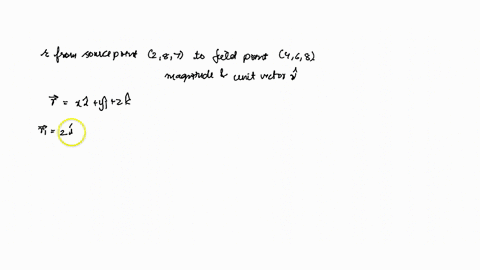 r from source point (2,8,7) to field point (4,6,8)
magnitude & unit vector r̂
r⃗ = xî + yĵ + zk̂
r⃗₁ = 2î